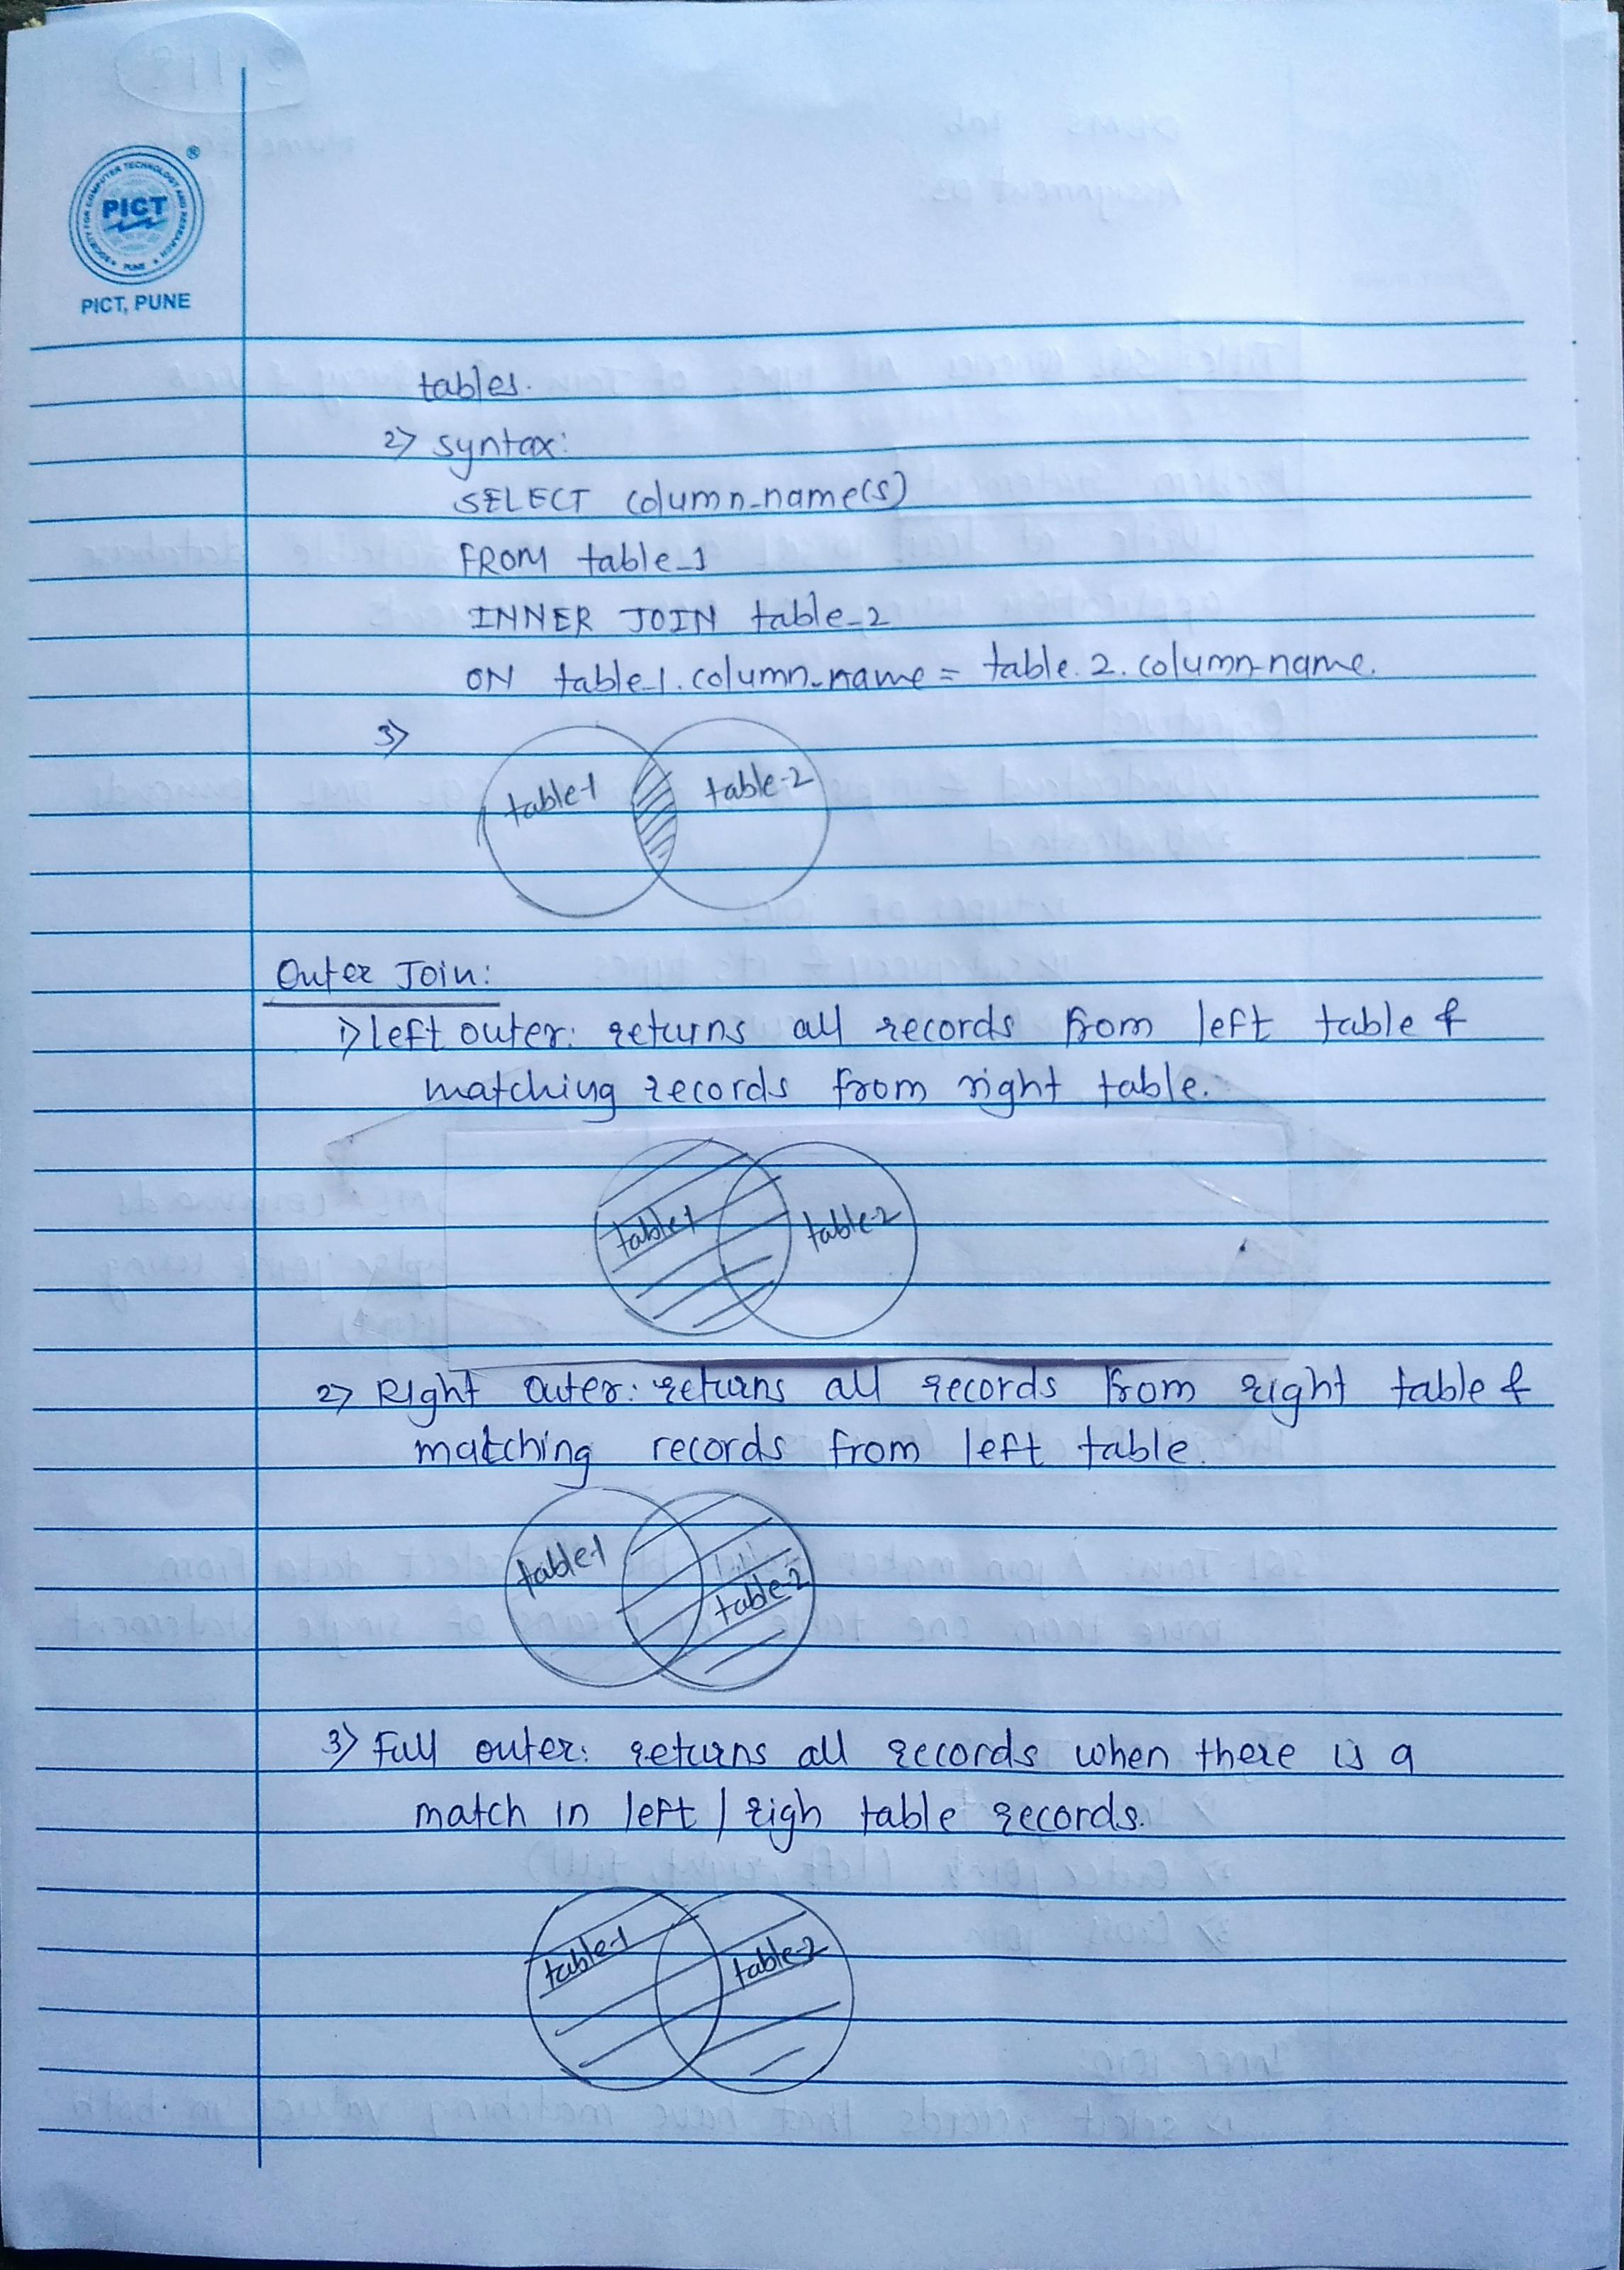 SOCIETY FOR COMPUTER TECHNOLOGY AND RESEARCH
PUNE
PICT
®
PICT, PUNE
tables.
2) syntax:
SELECT column_name(s)
FROM table_1
INNER JOIN table_2
ON table_1.column_name = table.2.column_name.
3)
table-1 table-2
Outer Join:
1) left outer: returns all records from left table &
matching records from right table.
table-1 table-2
2) Right outer: returns all records from right table &
matching records from left table.
table-1 table-2
3) Full outer: returns all records when there is a
match in left / righ table records.
table-1 table-2